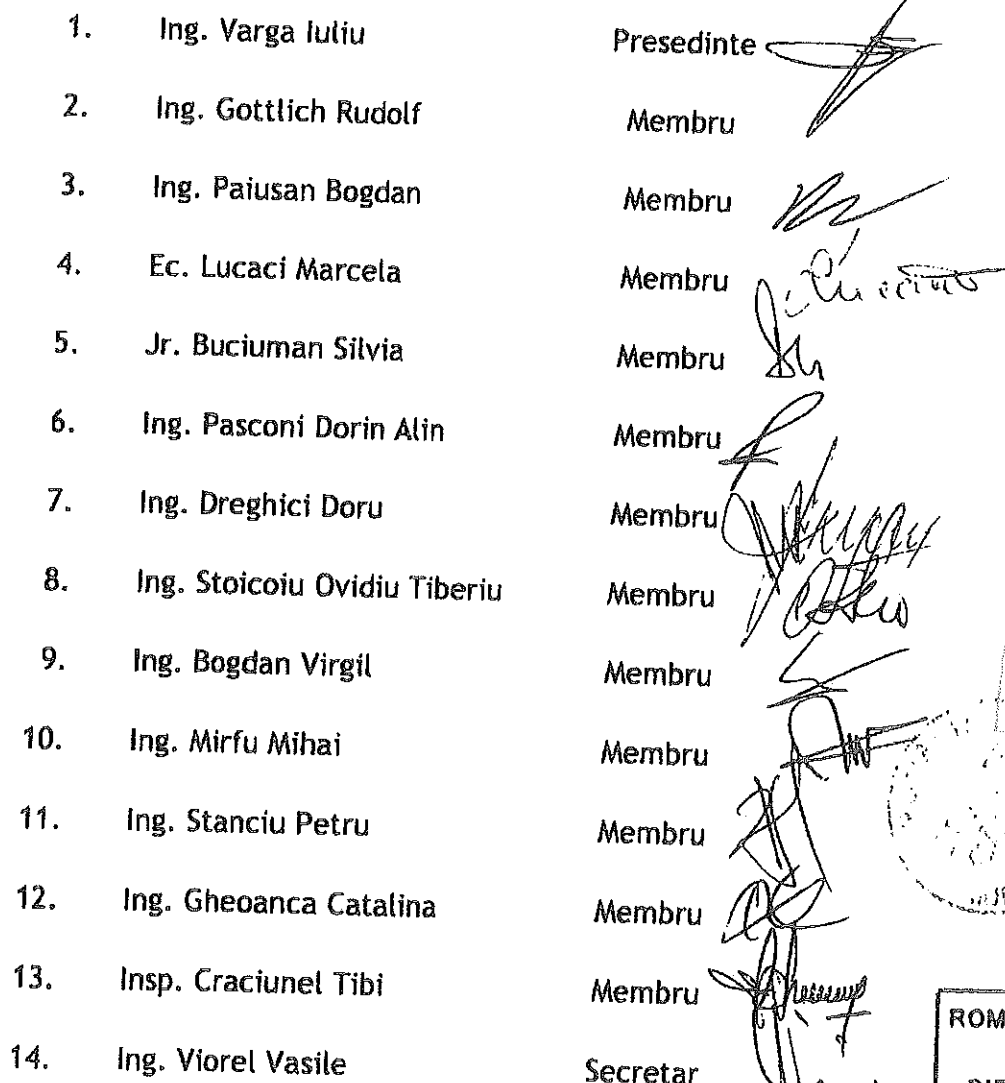 1. Ing. Varga Iuliu Presedinte
2. Ing. Gottlich Rudolf Membru
3. Ing. Paiusan Bogdan Membru
4. Ec. Lucaci Marcela Membru
5. Jr. Buciuman Silvia Membru
6. Ing. Pasconi Dorin Alin Membru
7. Ing. Dreghici Doru Membru
8. Ing. Stoicoiu Ovidiu Tiberiu Membru
9. Ing. Bogdan Virgil Membru
10. Ing. Mirfu Mihai Membru
11. Ing. Stanciu Petru Membru
12. Ing. Gheoanca Catalina Membru
13. Insp. Craciunel Tibi Membru
ROM
14. Ing. Viorel Vasile Secretar